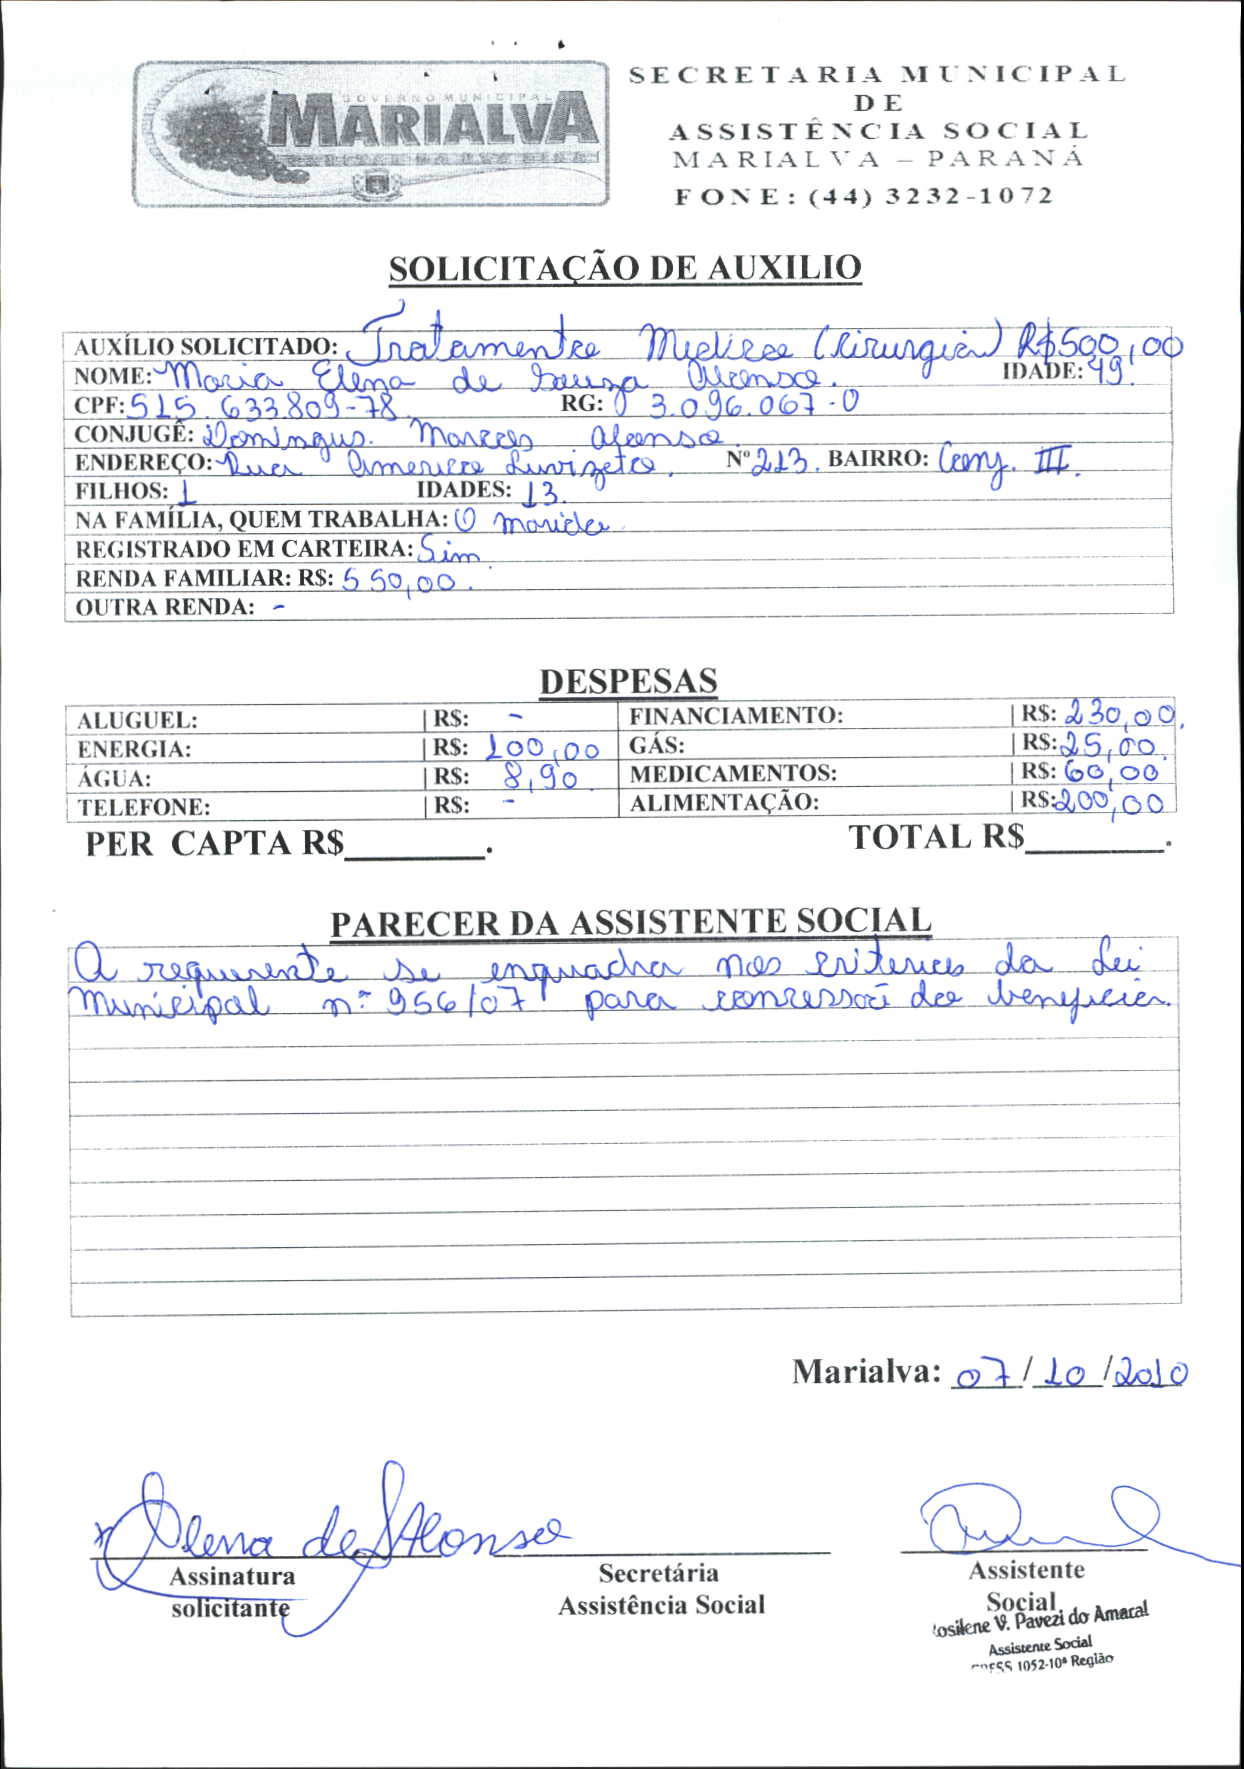 GOVERNO MUNICIPAL
MARIALVA
SECRETARIA MUNICIPAL
DE
ASSISTÊNCIA SOCIAL
MARIALVA – PARANÁ
FONE: (44) 3232-1072
SOLICITAÇÃO DE AUXILIO
AUXÍLIO SOLICITADO: Tratamento Médico (Cirurgia) R$500,00
NOME: Maria Elena de Souza Afonso. IDADE: 49.
CPF: 515.633.809-78 RG: 3.096.067-0
CONJUGÊ: Domingus Marcos Afonso.
ENDEREÇO: Rua Americo Luvizeto. Nº 213. BAIRRO: Conj. III.
FILHOS: 1 IDADES: 13.
NA FAMÍLIA, QUEM TRABALHA: O marido
REGISTRADO EM CARTEIRA: Sim
RENDA FAMILIAR: R$: 550,00.
OUTRA RENDA: -
DESPESAS
ALUGUEL: | R$: - FINANCIAMENTO: | R$: 230,00.
ENERGIA: | R$: 100,00 GÁS: | R$: 25,00
ÁGUA: | R$: 8,90 MEDICAMENTOS: | R$: 60,00
TELEFONE: | R$: - ALIMENTAÇÃO: | R$: 200,00
PER CAPTA R$________. TOTAL R$________.
PARECER DA ASSISTENTE SOCIAL
A requerente se enquadra nos criterios da Lei
Municipal nº 956/07 para concessão do beneficio.
Marialva: 07/10/2010
Elena de S Afonso
Assinatura
solicitante
Secretária
Assistência Social
Assistente
Social
Josilene V. Pavezi do Amaral
Assistente Social
CRESS 1052-10ª Região